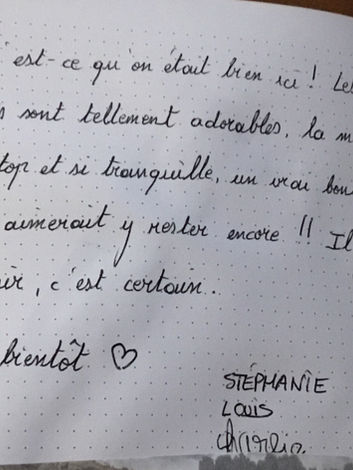 est-ce qu'on était bien ici ! Les
sont tellement adorables, la
top et si tranquille, un vrai bon
aimerait y rester encore !! Il
, c'est certain.
bientôt ♡
STÉPHANIE
LOUIS